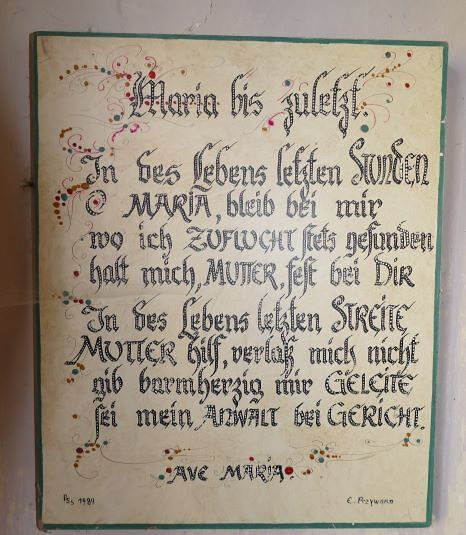 Maria bis zuletzt.
In des Lebens letzten STUNDEN
O MARIA, bleib bei mir
wo ich ZUFLUCHT stets gefunden
halt mich, MUTTER, fest bei DIR
In des Lebens letzten STREITE
MUTTER hilf, verlaß mich nicht
gib barmherzig mir GELEITE
sei mein ANWALT bei GERICHT.
AVE MARIA
1989 E. PRZYWARA